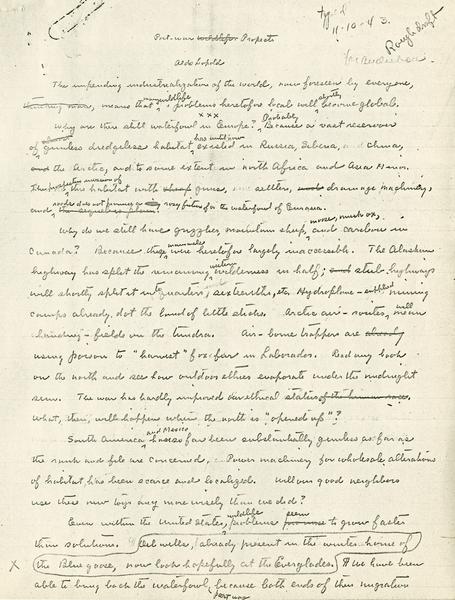 Typed
11-10-43.
Rough draft
for Audubon
Post-war wildlife Prospects
Aldo Leopold
The impending industrialization of the world, now foreseen by everyone,
means that many wildlife problems heretofore local will shortly become global.
x x x
Why are there still waterfowl in Europe? Probably Because a vast reservoir
of gunless dredgeless habitat has until now existed in Russia, Siberia, and China,
and the Arctic, and to some extent in north Africa and Asia Minor.
The prospective invasion of this habitat with cheap guns, new settlers, and drainage machinery,
and does not promise a rosy future for the waterfowl of Eurasia.
Why do we still have grizzlies, mountain sheep, moose, musk ox, and caribou in
Canada? Because these mammals were heretofore largely inaccessible. The Alaskan
highway has split the remaining western wilderness in half; and still highways
will shortly split it into quarters, sixteenths, etc. Hydroplane-supplied mining
camps already dot the land of little sticks. Arctic air-routes will mean
landing-fields on the tundra. Air-borne trappers are already
using poison to "harvest" fox-fur in Labrador. Read any book
on the north and see how outdoor ethics evaporate under the midnight
sun. The war has hardly improved our ethical status of the human race.
What, then, will happen when the north is "opened up"?
South America and Mexico has so far been substantially gunless as far as
the rank and file are concerned. Power machinery for wholesale alterations
of habitat has been scarce and localized. Will our good neighbors
use these new toys any more wisely than we did?
Even within the United States, wildlife problems seem to grow faster
than solutions. Oil wells, already present in the winter home of
x the Blue goose, now look hopefully at the Everglades. If we have been
able to bring back the waterfowl, because both ends of their migration